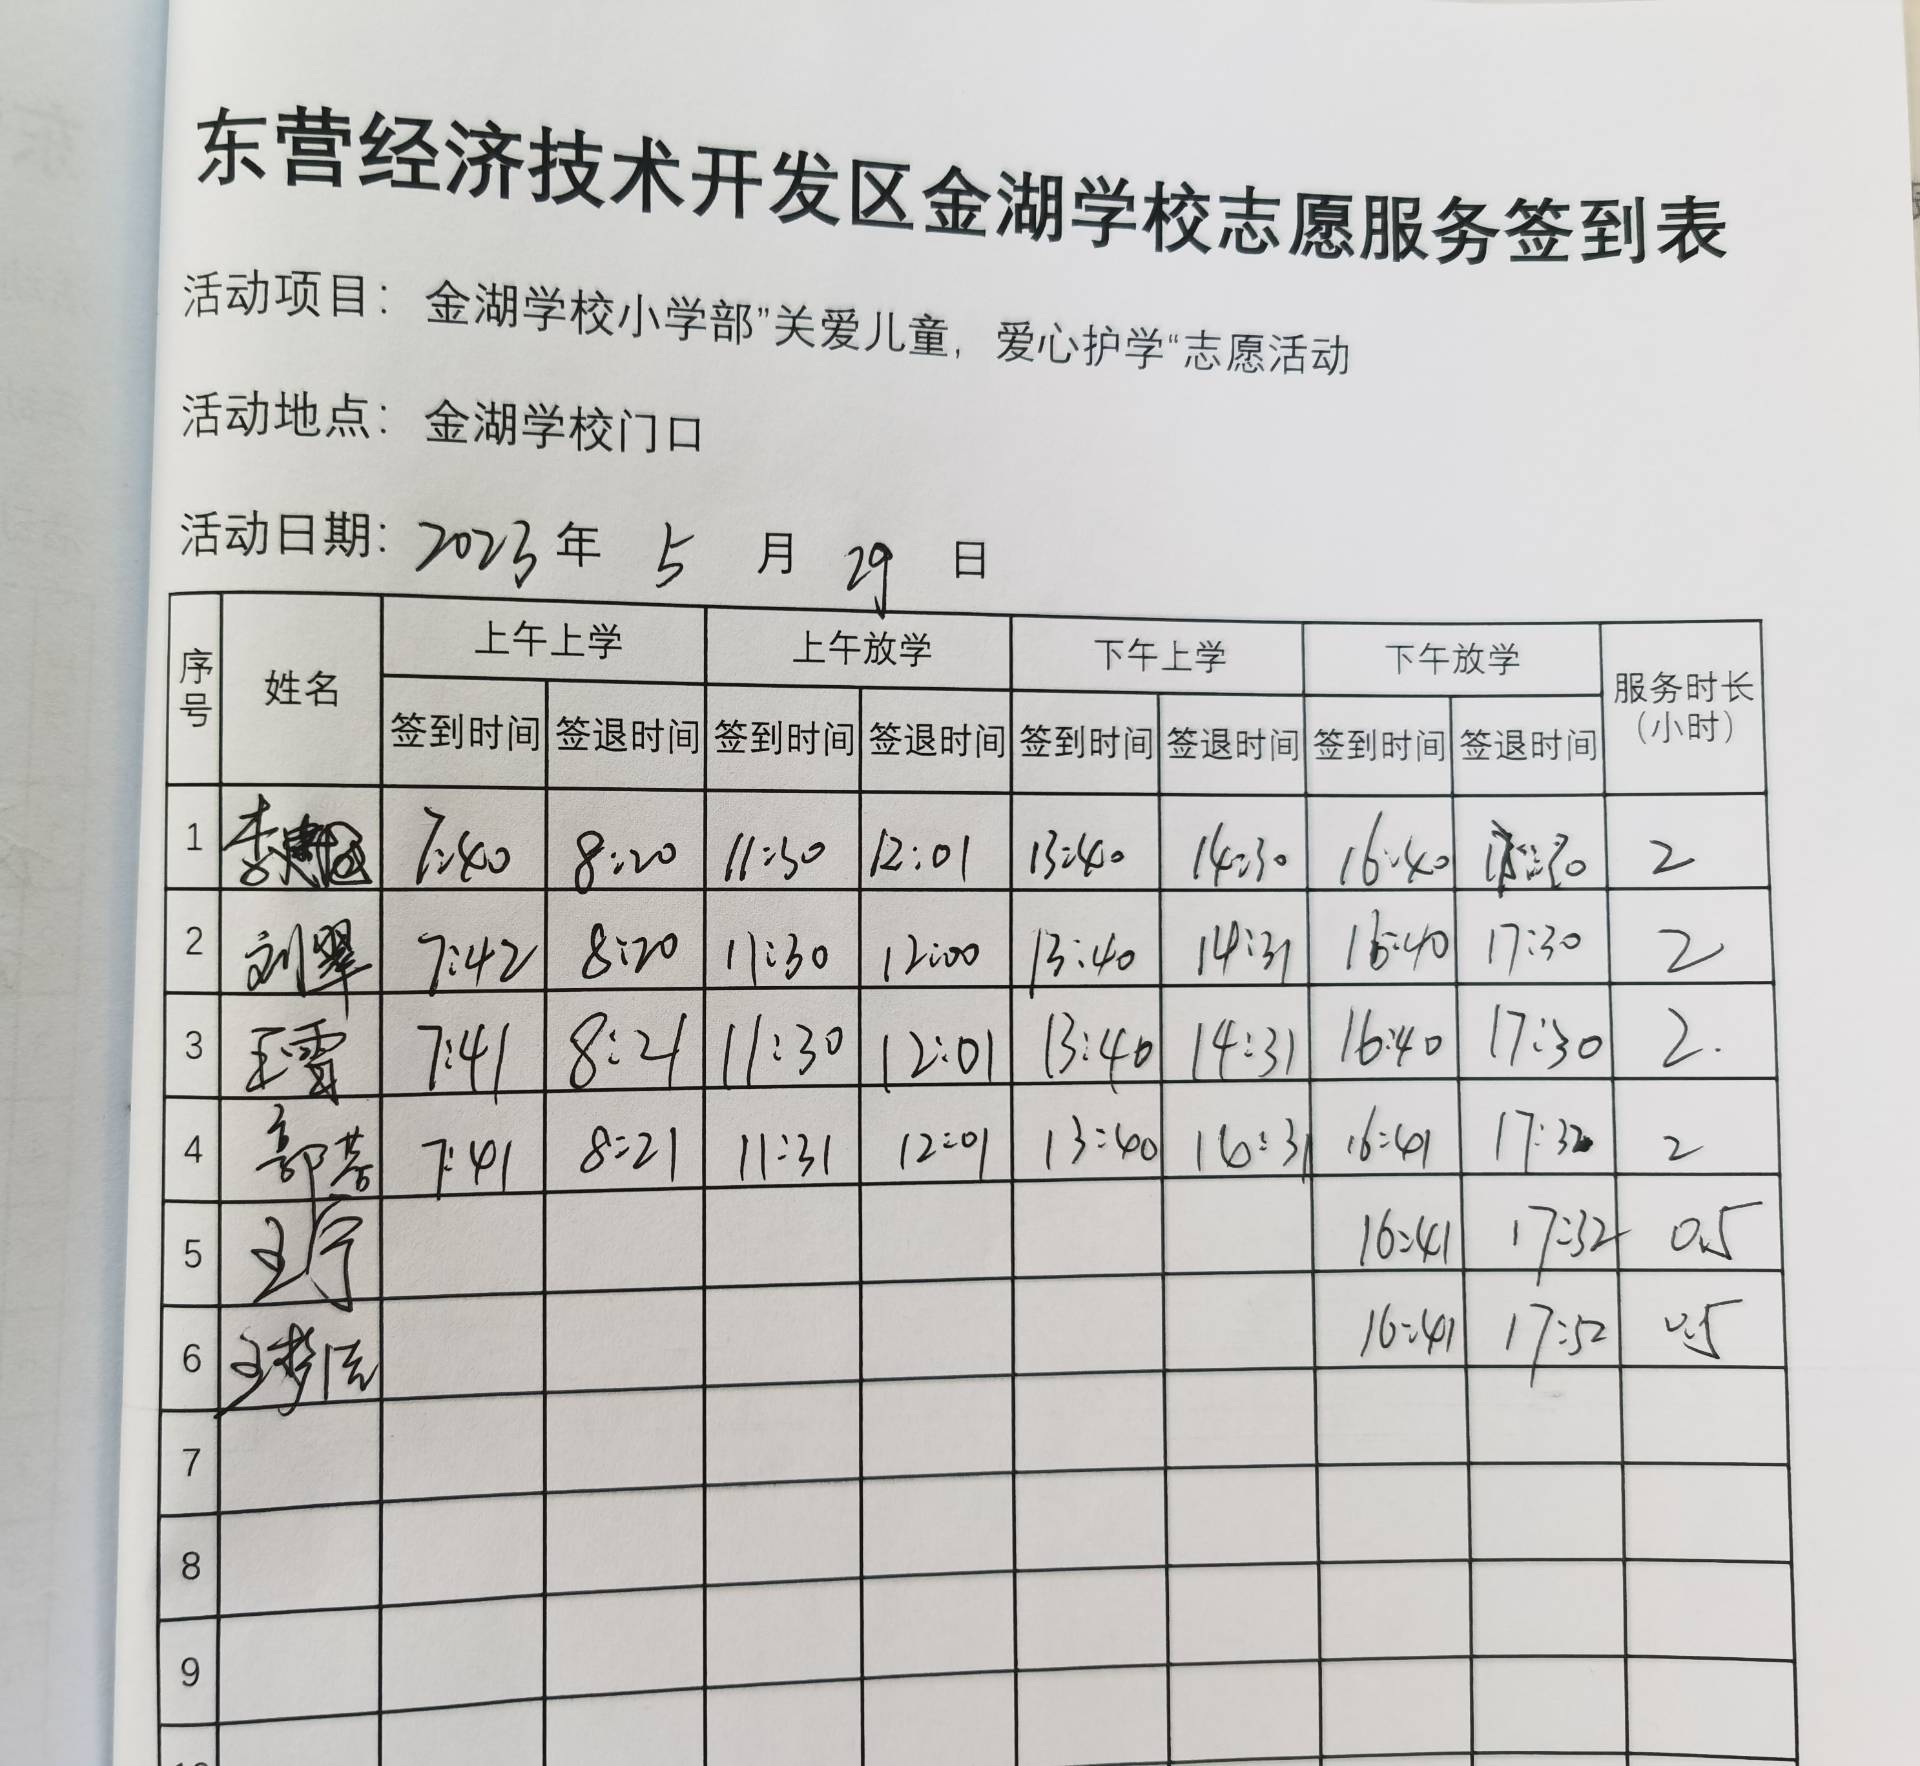 东营经济技术开发区金湖学校志愿服务签到表
活动项目：金湖学校小学部”关爱儿童，爱心护学“志愿活动
活动地点：金湖学校门口
活动日期：2023年 5 月 29 日
序号 姓名 上午上学 上午放学 下午上学 下午放学 服务时长（小时）
签到时间 签退时间 签到时间 签退时间 签到时间 签退时间 签到时间 签退时间
1 李 7:40 8:20 11:30 12:01 13:40 14:30 16:40 2
2 刘翠 7:42 8:20 11:30 12:00 13:40 14:31 16:40 17:30 2
3 王雪 7:41 8:21 11:30 12:01 13:40 14:31 16:40 17:30 2.
4 7:41 8:21 11:31 12:01 13:40 16:31 16:41 17:32 2
5 王宁 16:41 17:32 0.5
6 王梦 16:41 17:52 0.5
7
8
9